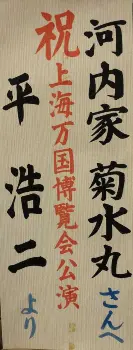 河内家 菊水丸 さんへ
祝 上海万国博覧会公演
平 浩二 より